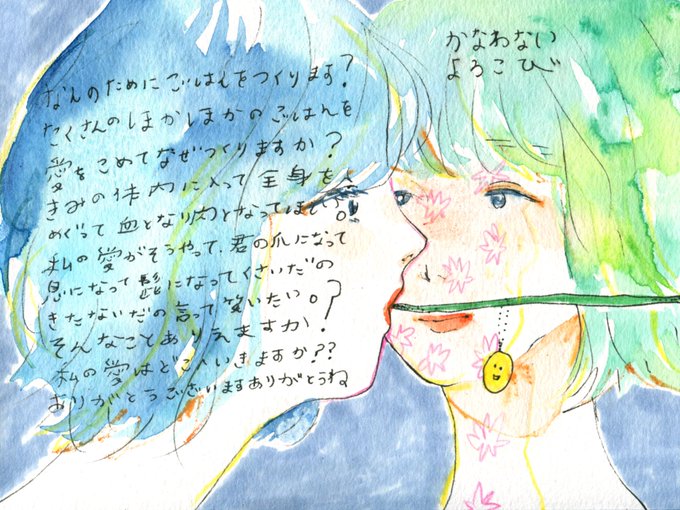 かなわない
よろこび
なんのためにごはんをつくります?
たくさんのほかほかのごはんを
愛をこめてなぜつくりますか?
きみの体内に入って全身を
めぐって血となり肉となってほしい。
私の愛がそうやって、君の爪になって
息になって髭になってくさいだの
きたないだの言って笑いたい。
そんなことありえますか?
私の愛はどこへいきますか??
ありがとうございますありがとうね